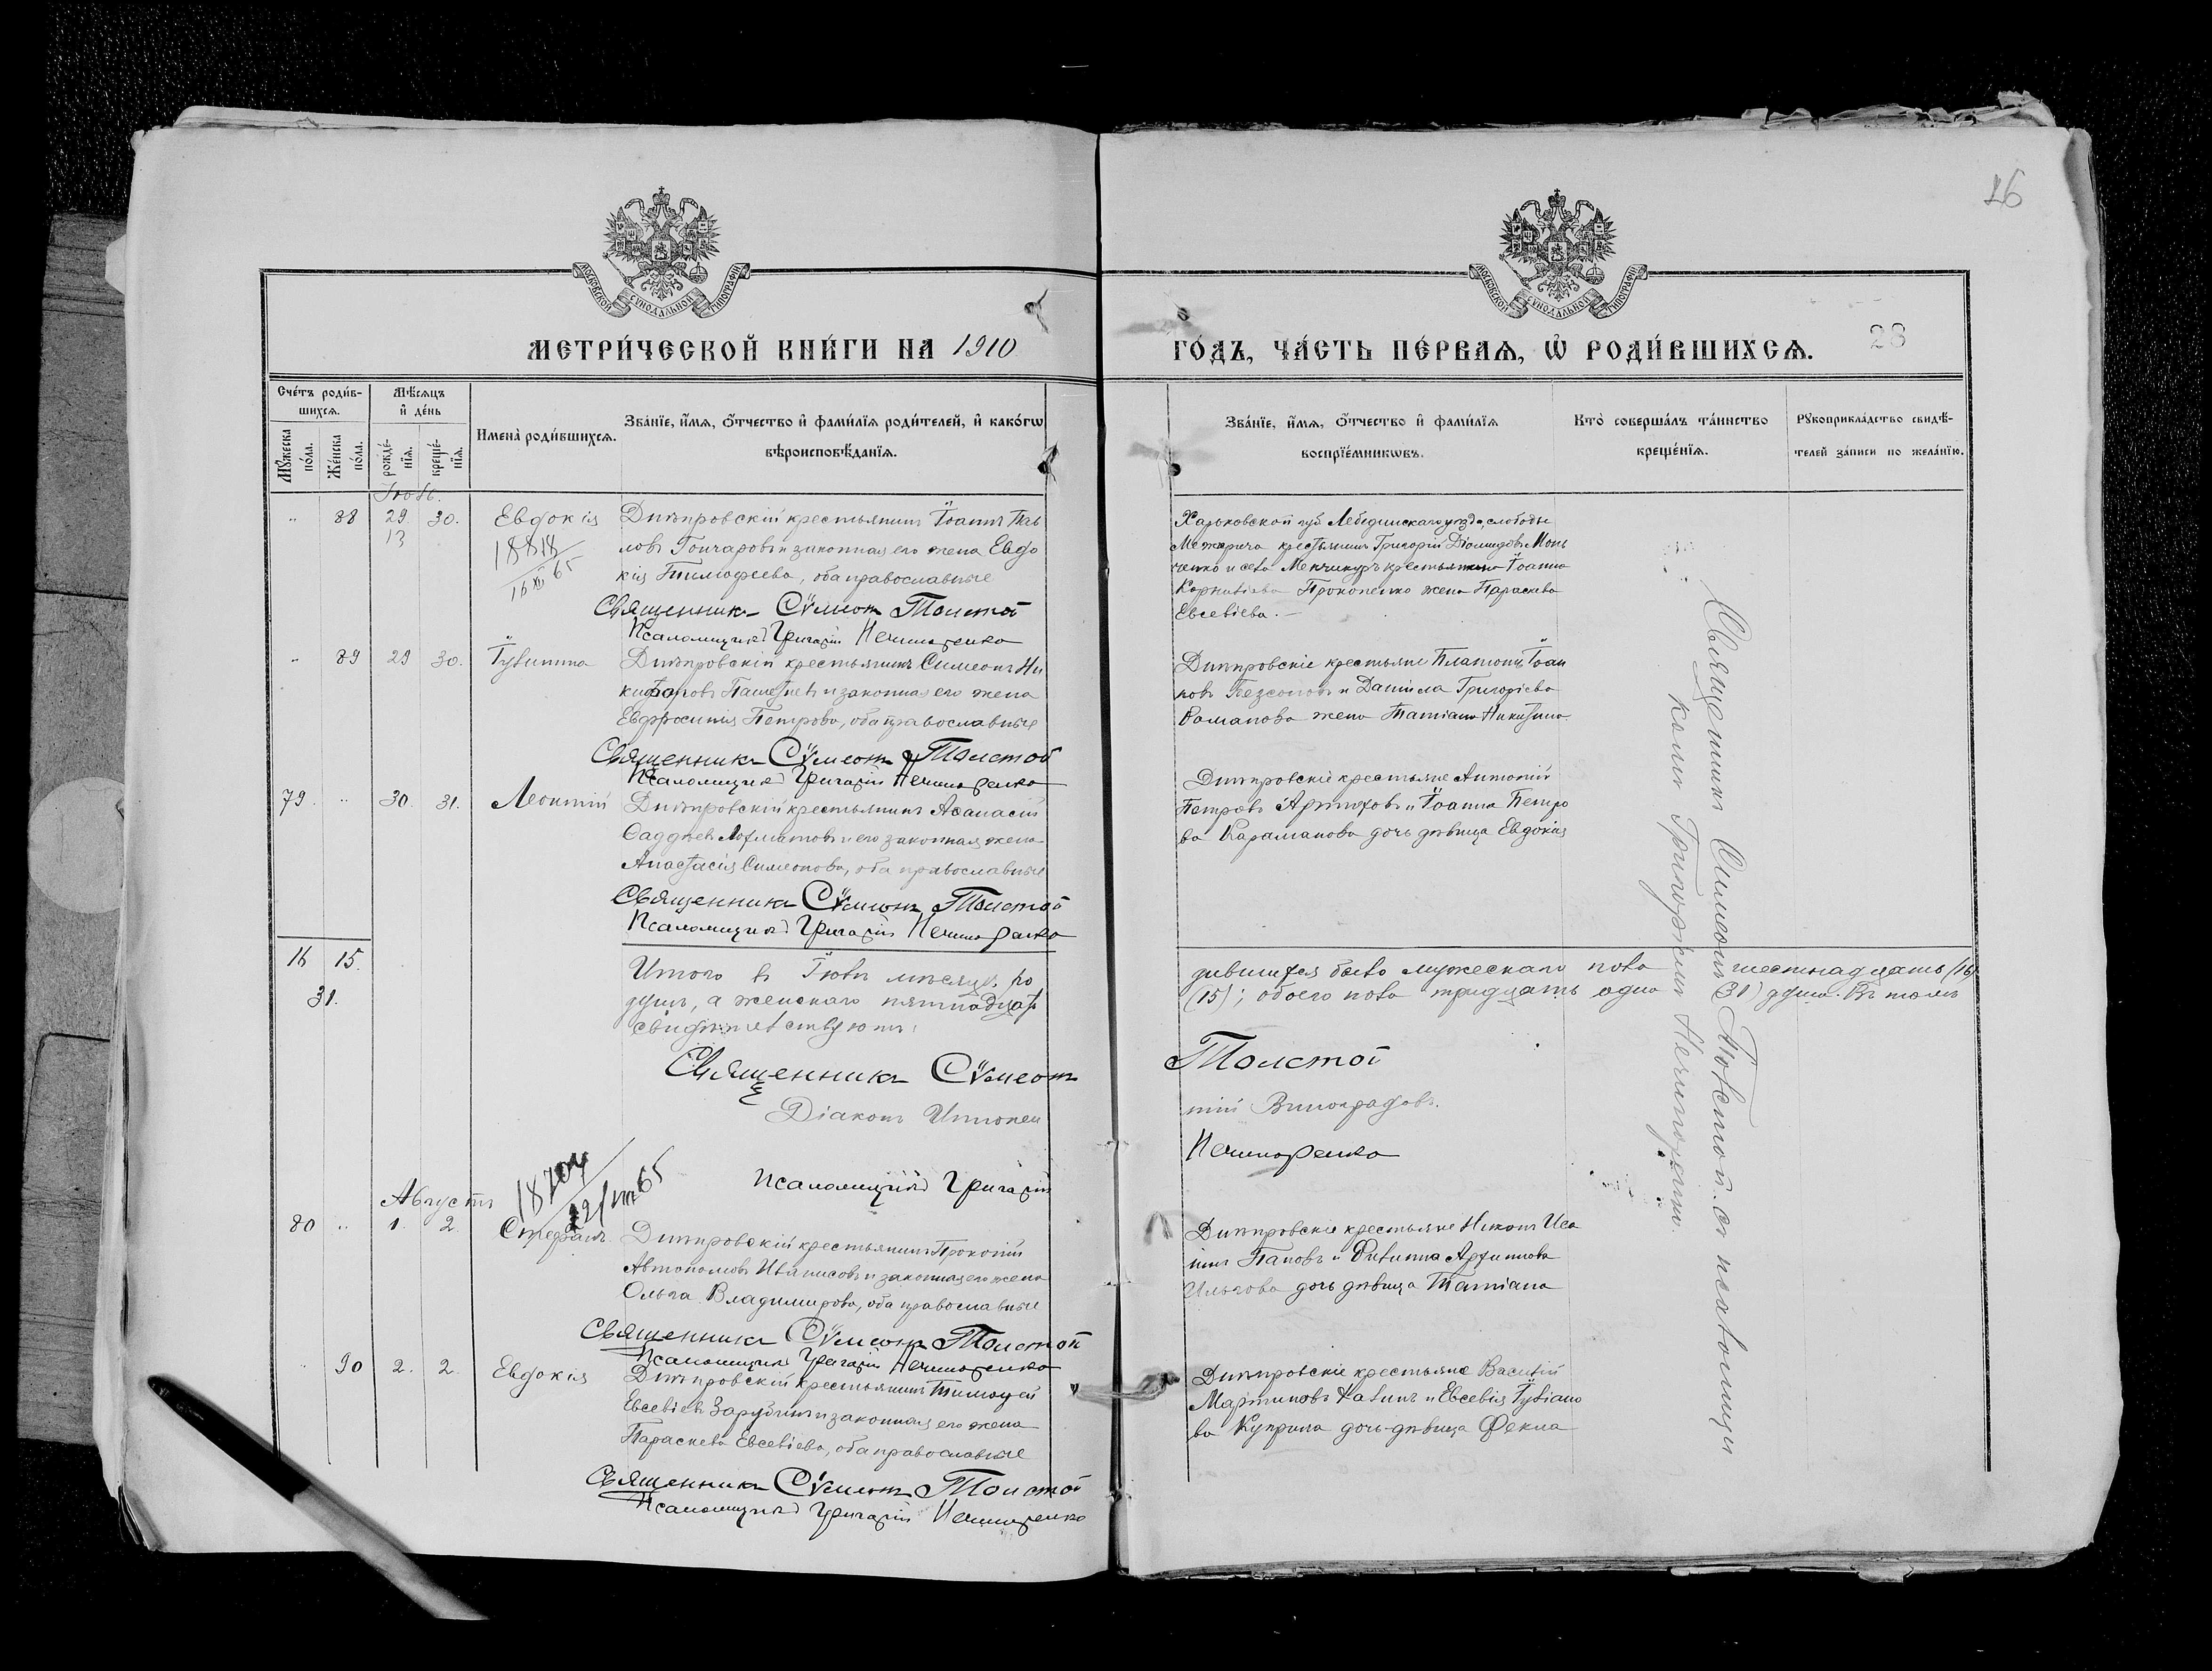 26
МОСКОВСКОЙ СѴНОДАЛЬНОЙ ТИПОГРАФІИ
МОСКОВСКОЙ СѴНОДАЛЬНОЙ ТИПОГРАФІИ
МЕТРИ́ЧЕСКОЙ КНИ́ГИ НА 1910
ГО́ДЪ, ЧА́СТЬ ПЕ́РВАЯ, Ѡ҆ РОДИ́ВШИХСѦ.
28
Сче́тъ роди́в-
шихсѧ.
Мѣ́сѧцъ
и҆ де́нь
Мꙋ́жеска по́ла.
Же́нска по́ла.
рожде́-
нїѧ.
креще́-
нїѧ.
Имена̀ роди́вшихсѧ.
Зва́нїе, и҆́мѧ, ѻ҆́тчество и҆ фами́лїѧ роди́телей, и҆ како́гѡ
вѣроисповѣ́данїѧ.
Зва́нїе, и҆́мѧ, ѻ҆́тчество и҆ фами́лїѧ
воспрїе́мникѡвъ.
Кто̀ соверша́лъ та́инство
креще́нїѧ.
Рꙋкоприкла́дство свидѣ́-
телей за́писи по жела́нїю.
Іюль.
" 88 29. 30. Евдокія
13
18818
16 XII 65
Днѣпровскій крестьянинъ Іоаннъ Пав
ловъ Гончаровъ и законная его жена Евдо
кія Тимофеева, оба православные
Священникъ Сѵмеонъ Толстой
Псаломщикъ Григорій Нечипоренко
Харьковской губ. Лебединскаго уѣзда, слободы
Межирича крестьянинъ Григорій Діомидовъ
ченко и села крестьянина Іоанна
Корнилieва Прокопенко жена Параскева
Евсевіева.
" 89 29 30. Іулитта
Днѣпровскій крестьянинъ Симеонъ Ни
кифоровъ и законная его жена
Евфросинія Петрова, оба православные
Священникъ Сѵмеонъ Толстой
Псаломщикъ Григорій Нечипоренко
Днѣпровскіе крестьяне Платонъ Іоан
новъ Безсоновъ и Даніила Григоріева
Романова жена Татіана Никитина.
79. " 30. 31. Леонтій
Днѣпровскій крестьянинъ Аѳанасій
Ѳаддѣевъ Лохматовъ и его законная жена
Анастасія Симеонова, оба православные
Священникъ Сѵмеонъ Толстой
Псаломщикъ Григорій Нечипоренко
Днѣпровскіе крестьяне Антоній
Петровъ Артюховъ и Іоанна Петро
ва Караманова дочь дѣвица Евдокія
16 15.
31.
Итого въ Іюлѣ мѣсяцѣ ро
дившихся было мужескаго пола шестнадцать (16)
душъ, а женскаго пятнадцать
(15); обоего пола тридцать одна (31) душа. Въ томъ
свидѣтельствуютъ:
Священникъ Сѵмеонъ Толстой
Діаконъ Виноградовъ.
Псаломщикъ Григорій Нечипоренко
Священникъ Симеонъ Толстой съ псаломщи
комъ Григоріемъ Нечипоренко.
Августъ
18204
12/VIII 65
80 " 1. 2. Стефанъ
Днѣпровскій крестьянинъ Прокопій
Автономовъ и законная его жена
Ольга Владимирова, оба православные
Священникъ Сѵмеонъ Толстой
Псаломщикъ Григорій Нечипоренко
Днѣпровскіе крестьяне Никонъ Иса
інъ Пановъ и Филиппа Архипова
Ильчова дочь дѣвица Татіана
" 90 2. 2. Евдокія
Днѣпровскій крестьянинъ Тимофей
Евсевіевъ Зарубинъ и законная его жена
Параскева Евсевіева, оба православные
Священникъ Сѵмеонъ Толстой
Псаломщикъ Григорій Нечипоренко
Днѣпровскіе крестьяне Василій
Мартиновъ Халинъ и Евсевія Іуліано
ва Куприна дочь-дѣвица Ѳекла